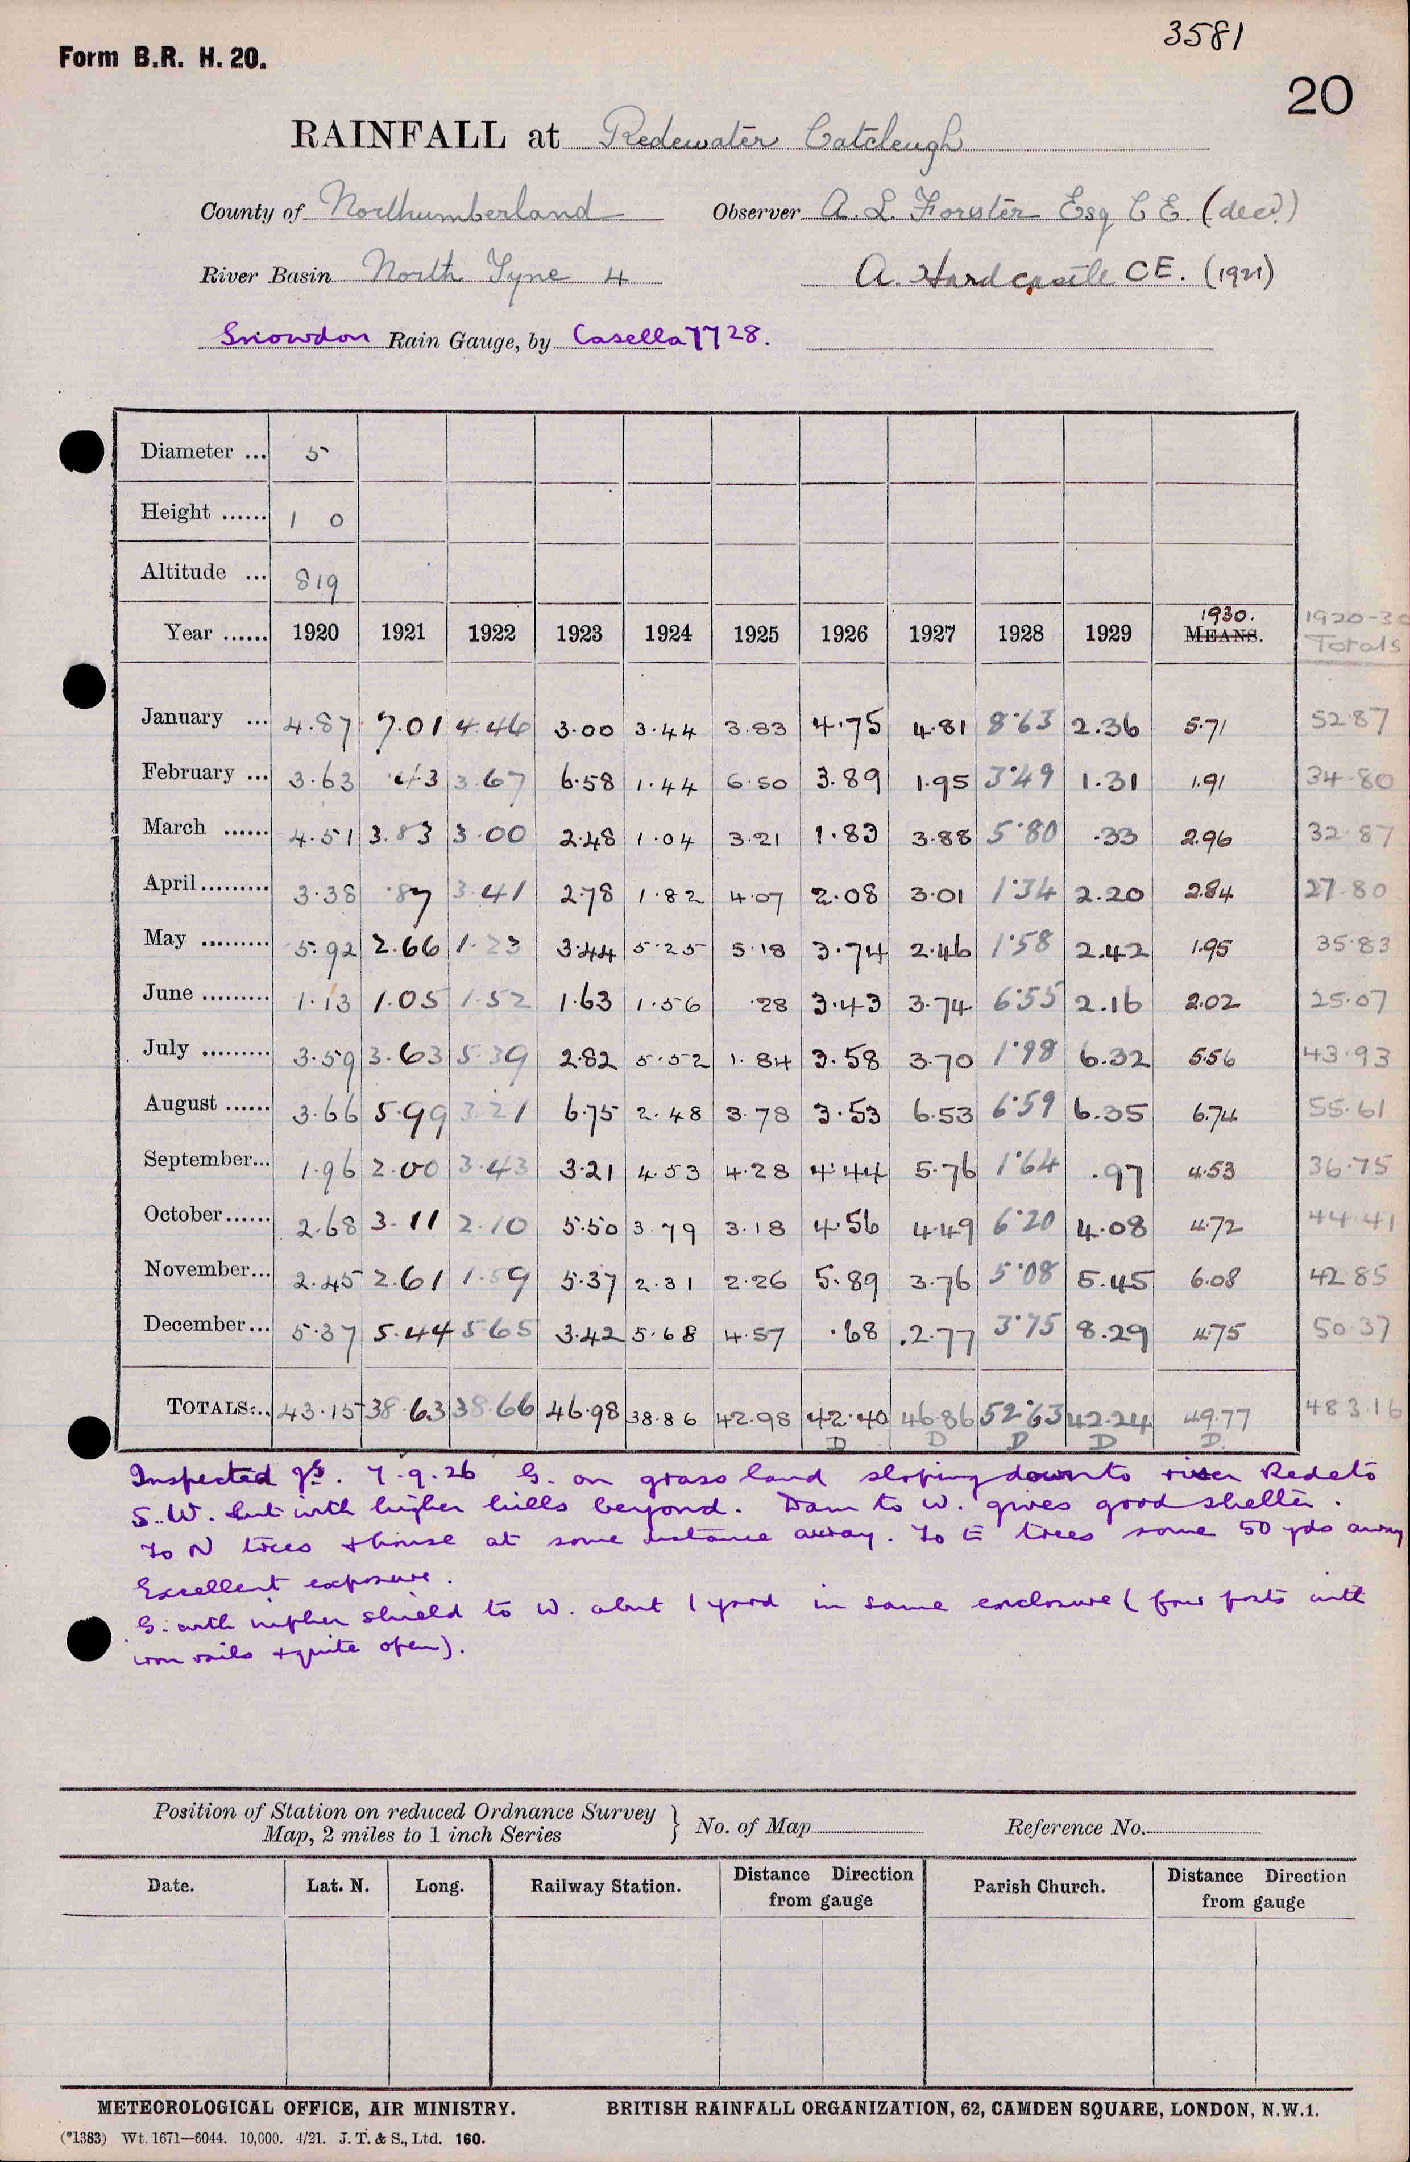 3581
Form B.R. H. 20.
20
RAINFALL at Redewater Catcleugh
County of Northumberland Observer A. L. Forster Esq C E. (decd.)
River Basin North Tyne 4 A. Hardcastle CE. (1921)
Snowdon Rain Gauge, by Casella 7728.
Diameter ... 5
Height ...... 1 0
Altitude ... 819
Year ...... 1920 1921 1922 1923 1924 1925 1926 1927 1928 1929 1930. MEANS. 1920-30 Totals
January ... 4.87 7.01 4.46 3.00 3.44 3.83 4.75 4.81 8.63 2.36 5.71 52.87
February ... 3.63 .43 3.67 6.58 1.44 6.50 3.89 1.95 3.49 1.31 1.91 34.80
March ...... 4.51 3.83 3.00 2.48 1.04 3.21 1.83 3.88 5.80 .33 2.96 32.87
April ......... 3.38 .87 3.41 2.78 1.82 4.07 2.08 3.01 1.34 2.20 2.84 27.80
May ......... 5.92 2.66 1.23 3.44 5.25 5.18 3.74 2.46 1.58 2.42 1.95 35.83
June ......... 1.13 1.05 1.52 1.63 1.56 .28 3.43 3.74 6.55 2.16 2.02 25.07
July ......... 3.59 3.63 5.39 2.82 5.52 1.84 3.58 3.70 1.98 6.32 5.56 43.93
August ...... 3.66 5.99 3.21 6.75 2.48 3.78 3.53 6.53 6.59 6.35 6.74 55.61
September... 1.96 2.00 3.43 3.21 4.53 4.28 4.44 5.76 1.64 .97 4.53 36.75
October...... 2.68 3.11 2.10 5.50 3.79 3.18 4.56 4.49 6.20 4.08 4.72 44.41
November... 2.45 2.61 1.59 5.37 2.31 2.26 5.89 3.76 5.08 5.45 6.08 42.85
December... 5.37 5.44 5.65 3.42 5.68 4.57 .68 .2.77 3.75 8.29 4.75 50.37
TOTALS... 43.15 38.63 38.66 46.98 38.86 42.98 42.40 46.86 52.63 42.24 49.77 483.16
D D D D D
Inspected 7.9.26 G. on grass land sloping down to river Rede to
S.W. but with higher hills beyond. Dam to W. gives good shelter.
To N trees & house at some distance away. To E trees some 50 yds away
Excellent exposure.
G. with nipher shield to W. about 1 yard in same enclosure (four posts with
iron rails & quite open).
Position of Station on reduced Ordnance Survey
Map, 2 miles to 1 inch Series } No. of Map Reference No.
Date. Lat. N. Long. Railway Station. Distance Direction from gauge Parish Church. Distance Direction from gauge
METEOROLOGICAL OFFICE, AIR MINISTRY. BRITISH RAINFALL ORGANIZATION, 62, CAMDEN SQUARE, LONDON, N.W.1.
(*1383) Wt. 1671—6044. 10,000. 4/21. J. T. & S., Ltd. 160.